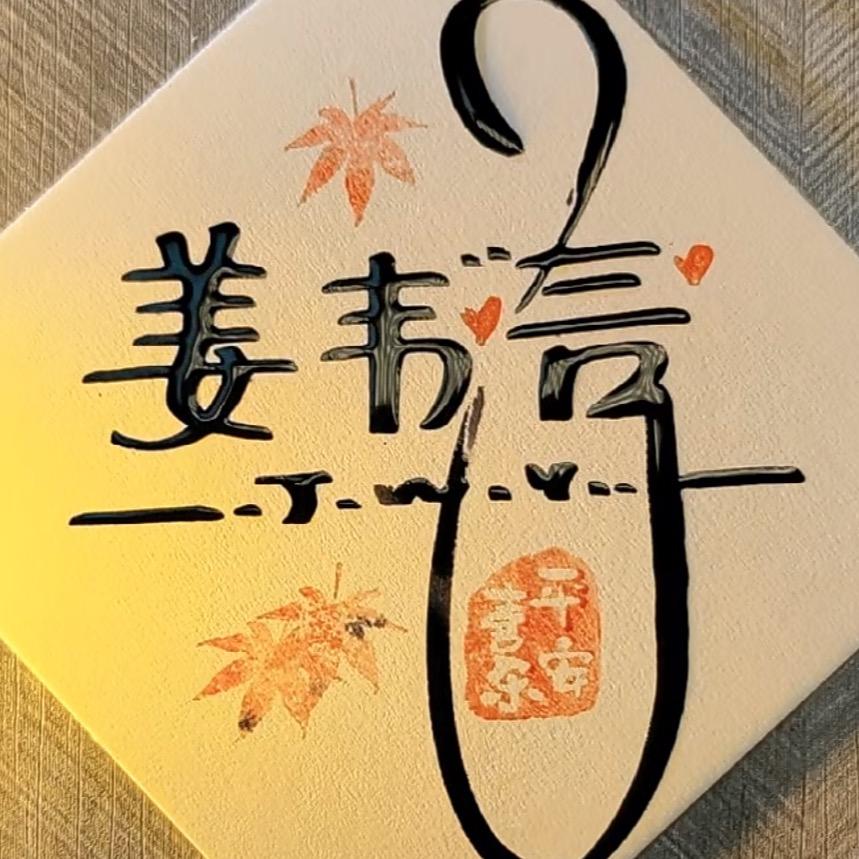 姜韦言
J.W.Y
平安
喜乐